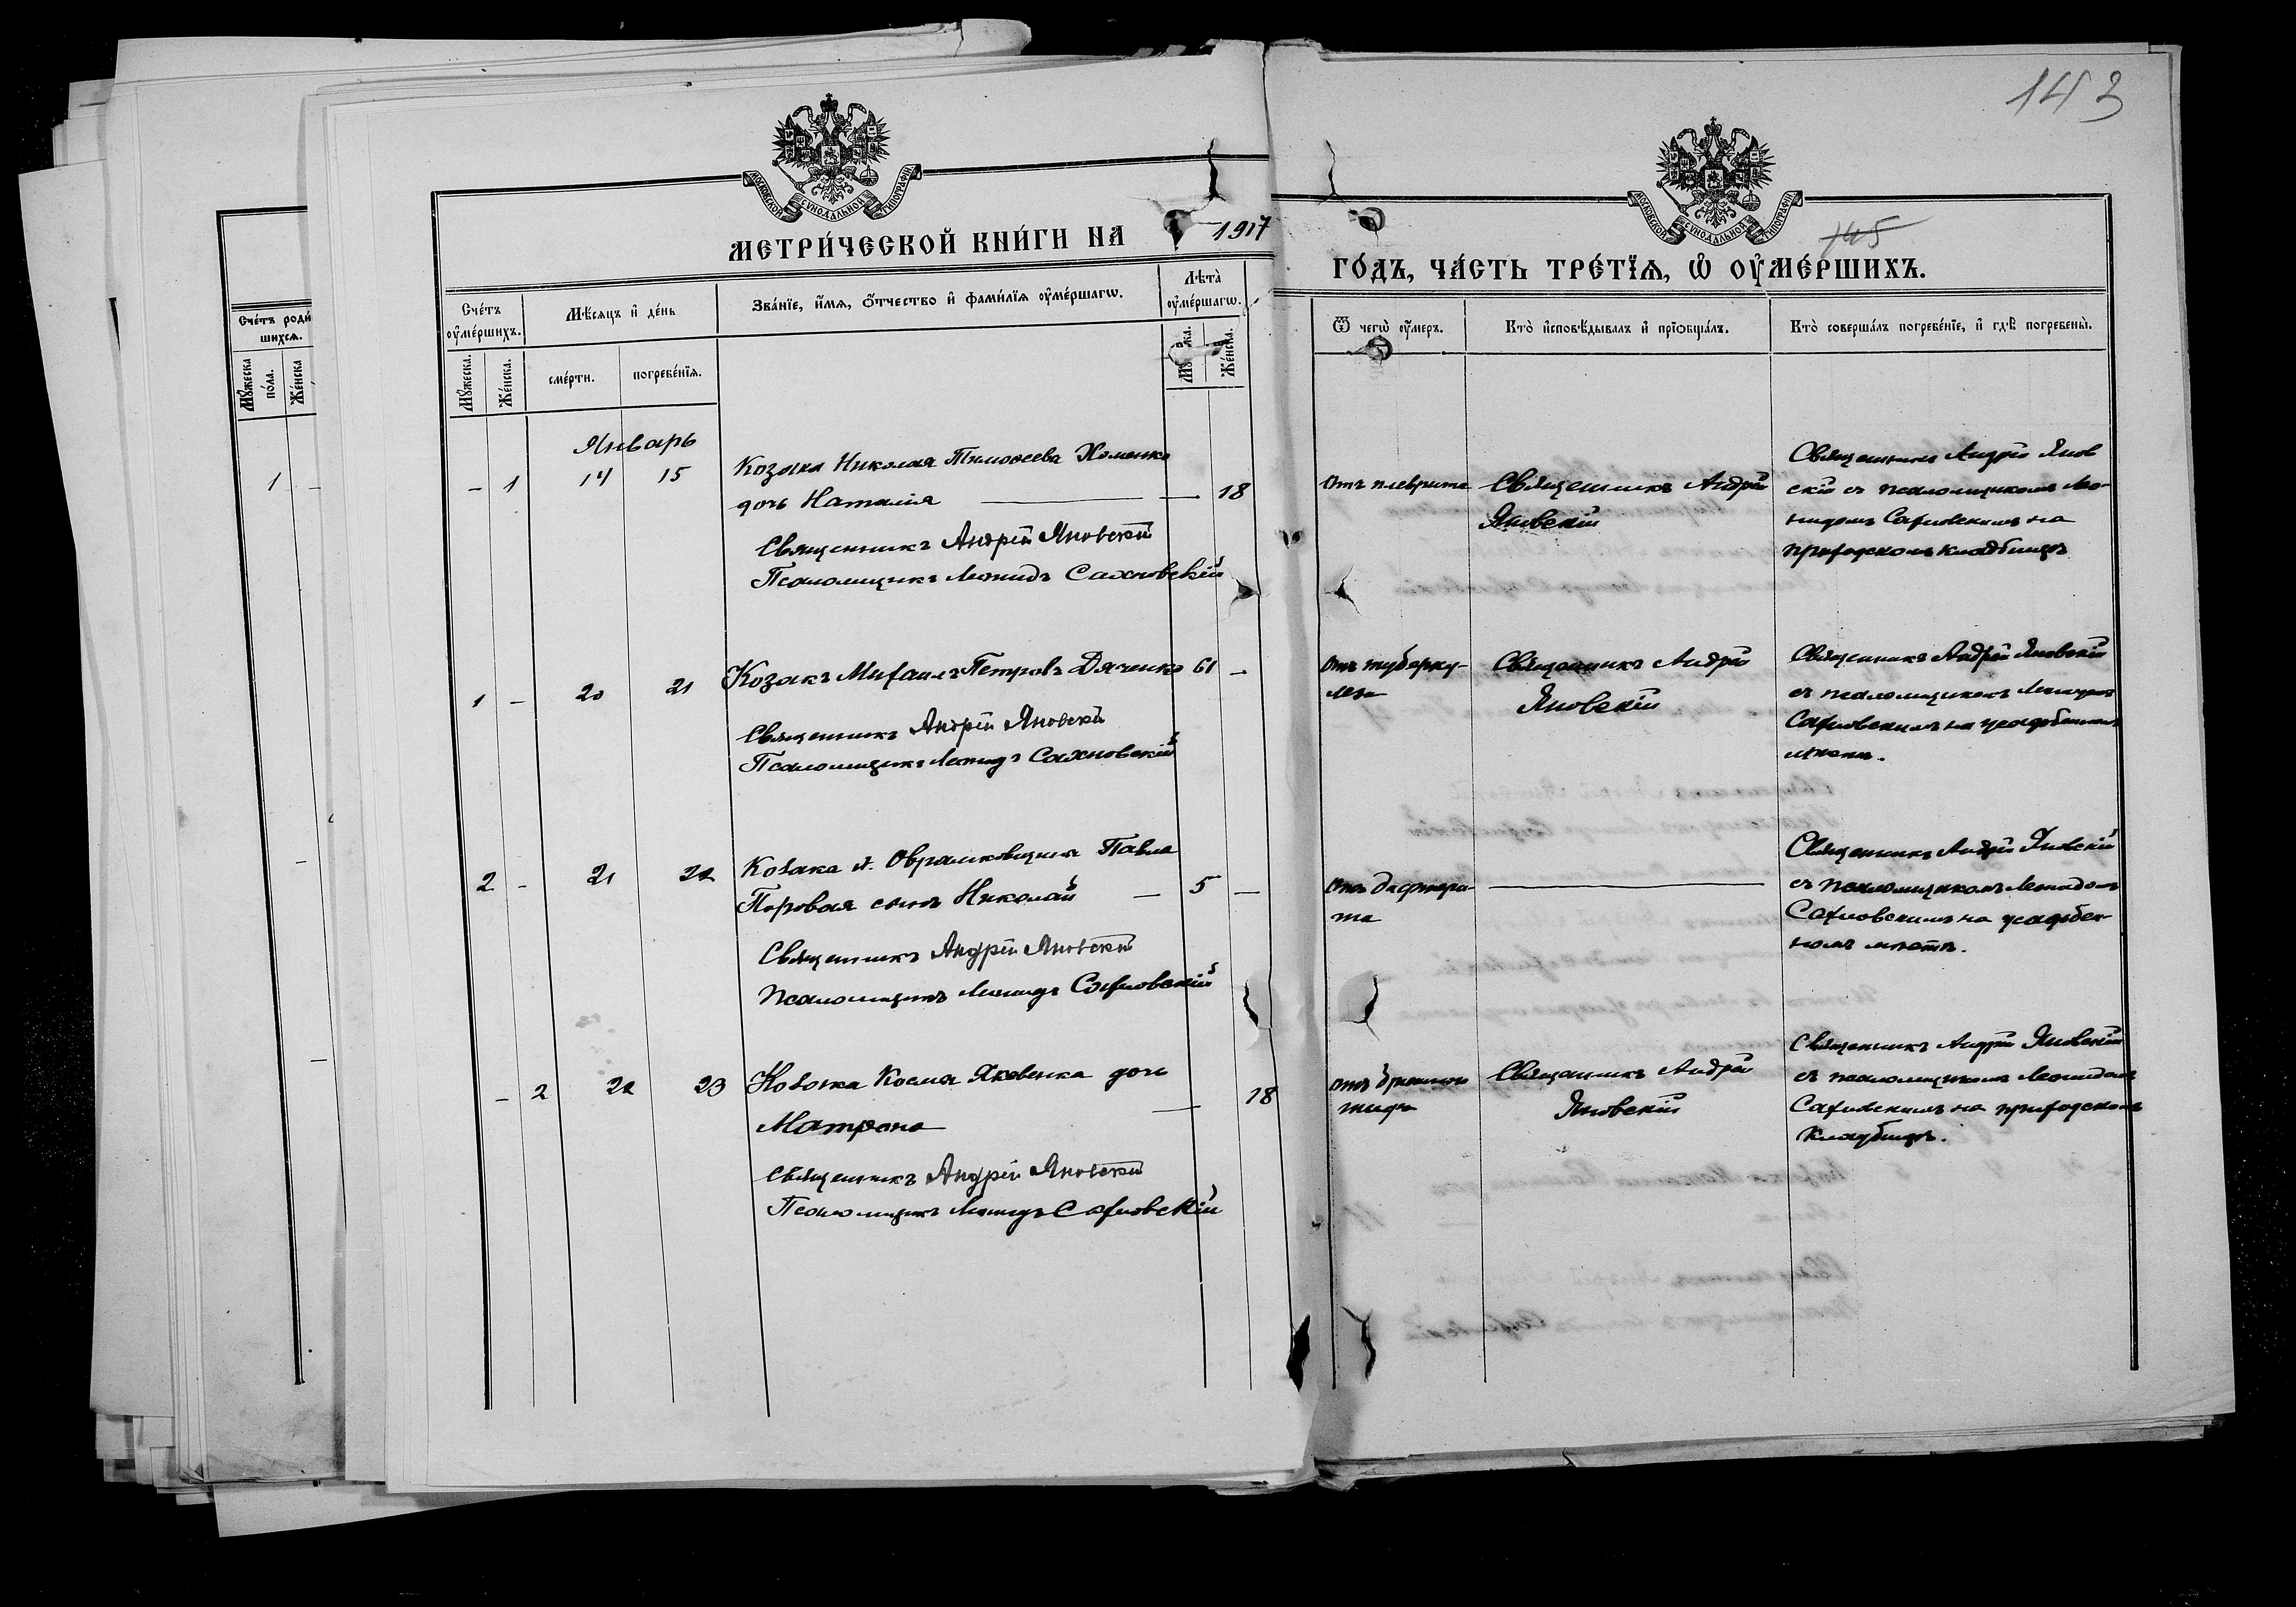 143
МОСКОВСКОЙ СѴНОДАЛЬНОЙ ТИПОГРАФІИ
МОСКОВСКОЙ СѴНОДАЛЬНОЙ ТИПОГРАФІИ
145
МЕТРИ́ЧЕСКОЙ КНИ́ГИ НА 1917
ГО́ДЪ, ЧА́СТЬ ТРЕ́ТЇѦ, Ѽ ОУ҆МЕ́РШИХЪ.
Сче́тъ роди́
шихсѧ.
Мꙋ́жеска
по́ла.
Же́нска
1 -
Сче́тъ
оу҆ме́ршихъ.
Мѣ́сѧцъ и҆ де́нь
Зва́нїе, и҆́мѧ, ѻ҆́тчество и҆ фами́лїѧ оу҆ме́ршагѡ.
Лѣ́та
оу҆ме́ршагѡ.
Ѿ чегѡ̀ оу҆́меръ.
Кто̀ и҆сповѣ́дывалъ и҆ прїѻбща́лъ.
Кто̀ соверша́лъ погребе́нїе, и҆ гдѣ̀ погребены̀.
Мꙋ́жеска.
Же́нска.
сме́рти.
погребе́нїѧ.
Же́нска.
Январь
- 1 14 15 Козака Николая Тимоѳеева Хоменко
дочь Наталія — 18
Священникъ Андрей Яновскій
Псаломщикъ Леонидъ Сахновскій
Отъ плеврита
Священникъ Андрей
Яновскій
Священникъ Андрей Янов
скій съ псаломщикомъ Лео-
нидомъ Сахновскимъ на
приходскомъ кладбищѣ
1 - 20 21 Козакъ Михаилъ Петровъ Дяченко 61 -
Священникъ Андрей Яновскій
Псаломщикъ Леонидъ Сахновскій
Отъ туберку-
леза
Священникъ Андрей
Яновскій
Священникъ Андрей Яновскій
съ псаломщикомъ Леонидомъ
Сахновскимъ на усадебномъ
мѣстѣ.
2 - 21 22 Козака Павла
сынъ Николай — 5 —
Священникъ Андрей Яновскій
Псаломщикъ Леонидъ Сахновскій
Отъ дифтери-
та
Священникъ Андрей Яновскій
съ псаломщикомъ Леонидомъ
Сахновскимъ на усадеб-
номъ мѣстѣ.
- 2 22 23 Козака Космы Яковенка дочь
Матрона — 18
Священникъ Андрей Яновскій
Псаломщикъ Леонидъ Сахновскій
Отъ брюшного
тифа
Священникъ Андрей
Яновскій
Священникъ Андрей Яновскій
съ псаломщикомъ Леонидомъ
Сахновскимъ на приходскомъ
кладбищѣ.